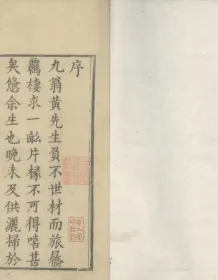 序
九翁黃先生負不世材而旅居
羈棲求一畝片椽不可得嘻甚
矣悠余生也晚未及供灑掃於